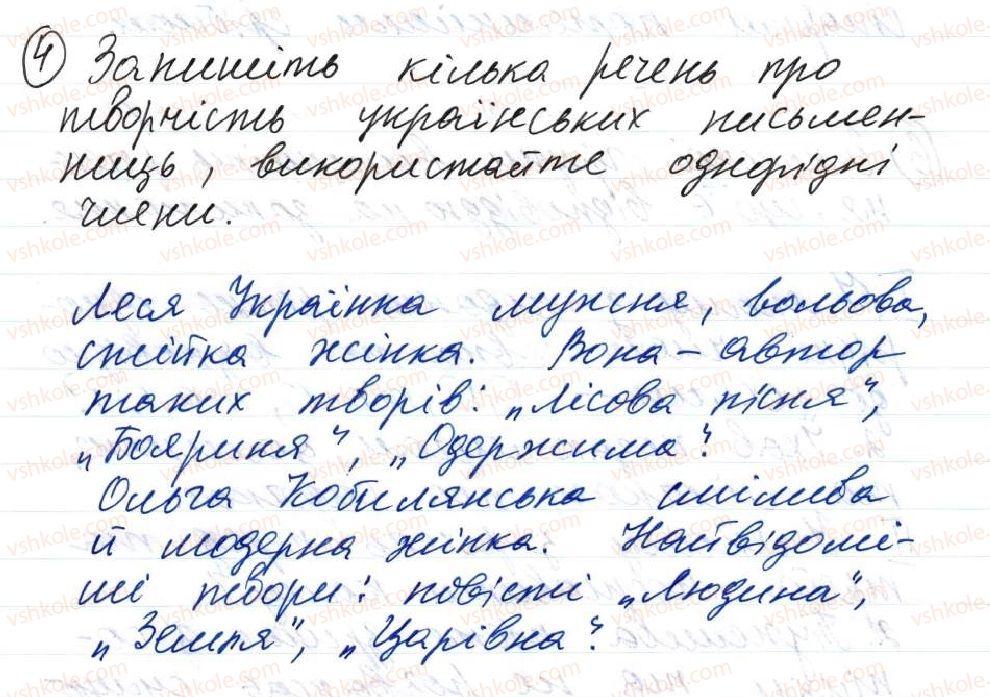 4 Запишіть кілька речень про
творчість українських письмен-
ниць, використайте однорідні
члени.
Леся Українка мужня, вольова,
стійка жінка. Вона – автор
таких творів: „Лісова пісня",
„Бояриня", „Одержима".
Ольга Кобилянська смілива
й модерна жінка. Найвідомі-
ші твори: повісті „Людина",
„Земля", „Царівна".